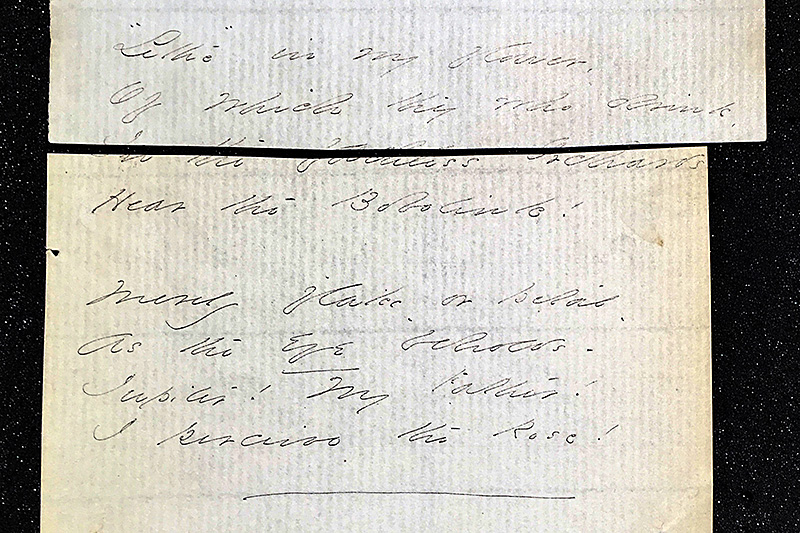 "Lethe" in my flower,
Of which they who drink,
In the fadeless Orchards
Hear the Bobolink!
Merely flake or petal
As the Eye beholds -
Jupiter! My Father!
I perceive the Rose!